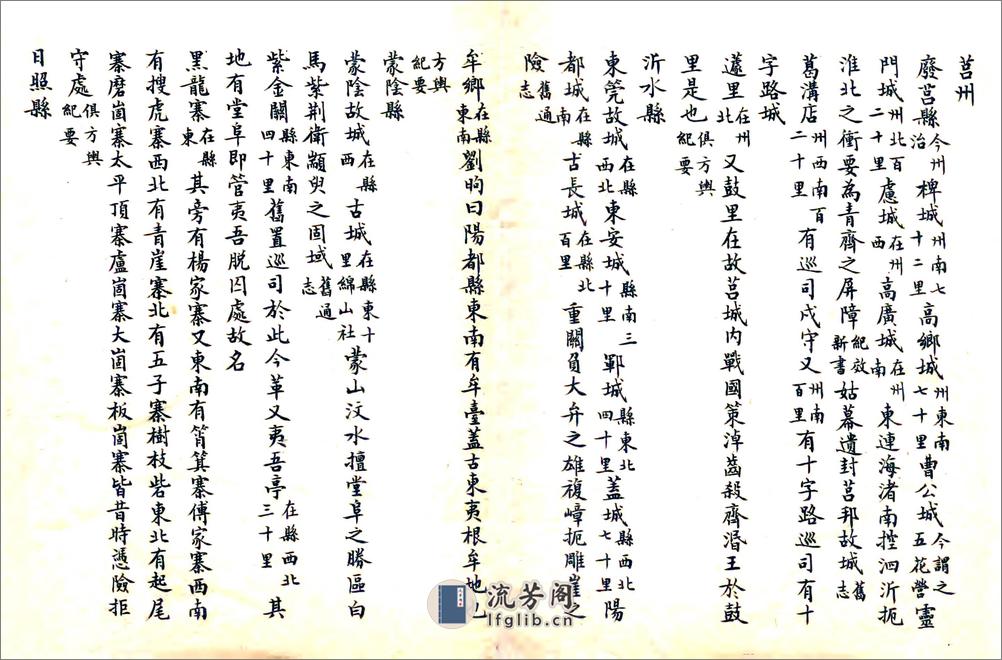 莒州
廢莒縣今州治椑城州南七十二里高鄉城州東南七十里曹公城今謂之五花營靈
門城州北百二十里慮城在州西高廣城在州南東連海渚南控泗沂扼
淮北之衝要為青齊之屏障紀效新書姑幕遺封莒邦故城舊志
葛溝店州西南百二十里有巡司戍守又州南百里有十字路巡司有十
字路城
薳里在州北又鼓里在故莒城內戰國策淖齒殺齊湣王於鼓
里是也俱方輿紀要
沂水縣
東筦故城在縣西北東安城縣南三十里鄆城縣東北四十里蓋城縣西北七十里陽
都城在縣南古長城在縣北百里重關負大弁之雄複嶂扼雕崖之
險舊通志
牟鄉在縣東南劉昫曰陽都縣東南有牟臺蓋古東夷根牟地也
方輿紀要
蒙陰縣
蒙陰故城在縣西古城在縣東十里綿山社蒙山汶水擅堂阜之勝區白
馬紫荆衛顓臾之固域舊通志
紫金關縣東南四十里舊置巡司於此今革又夷吾亭在縣西北三十里其
地有堂阜即管夷吾脫囚處故名
黑龍寨在縣東其旁有楊家寨又東南有箕箕寨傅家寨西南
有搜虎寨西北有青崖寨北有五子寨樹枝砦東北有起尾
寨磨崮寨太平頂寨盧崮寨大崮寨板崮寨皆昔時憑險拒
守處俱方輿紀要
日照縣
流芳阁
lfglib.cn